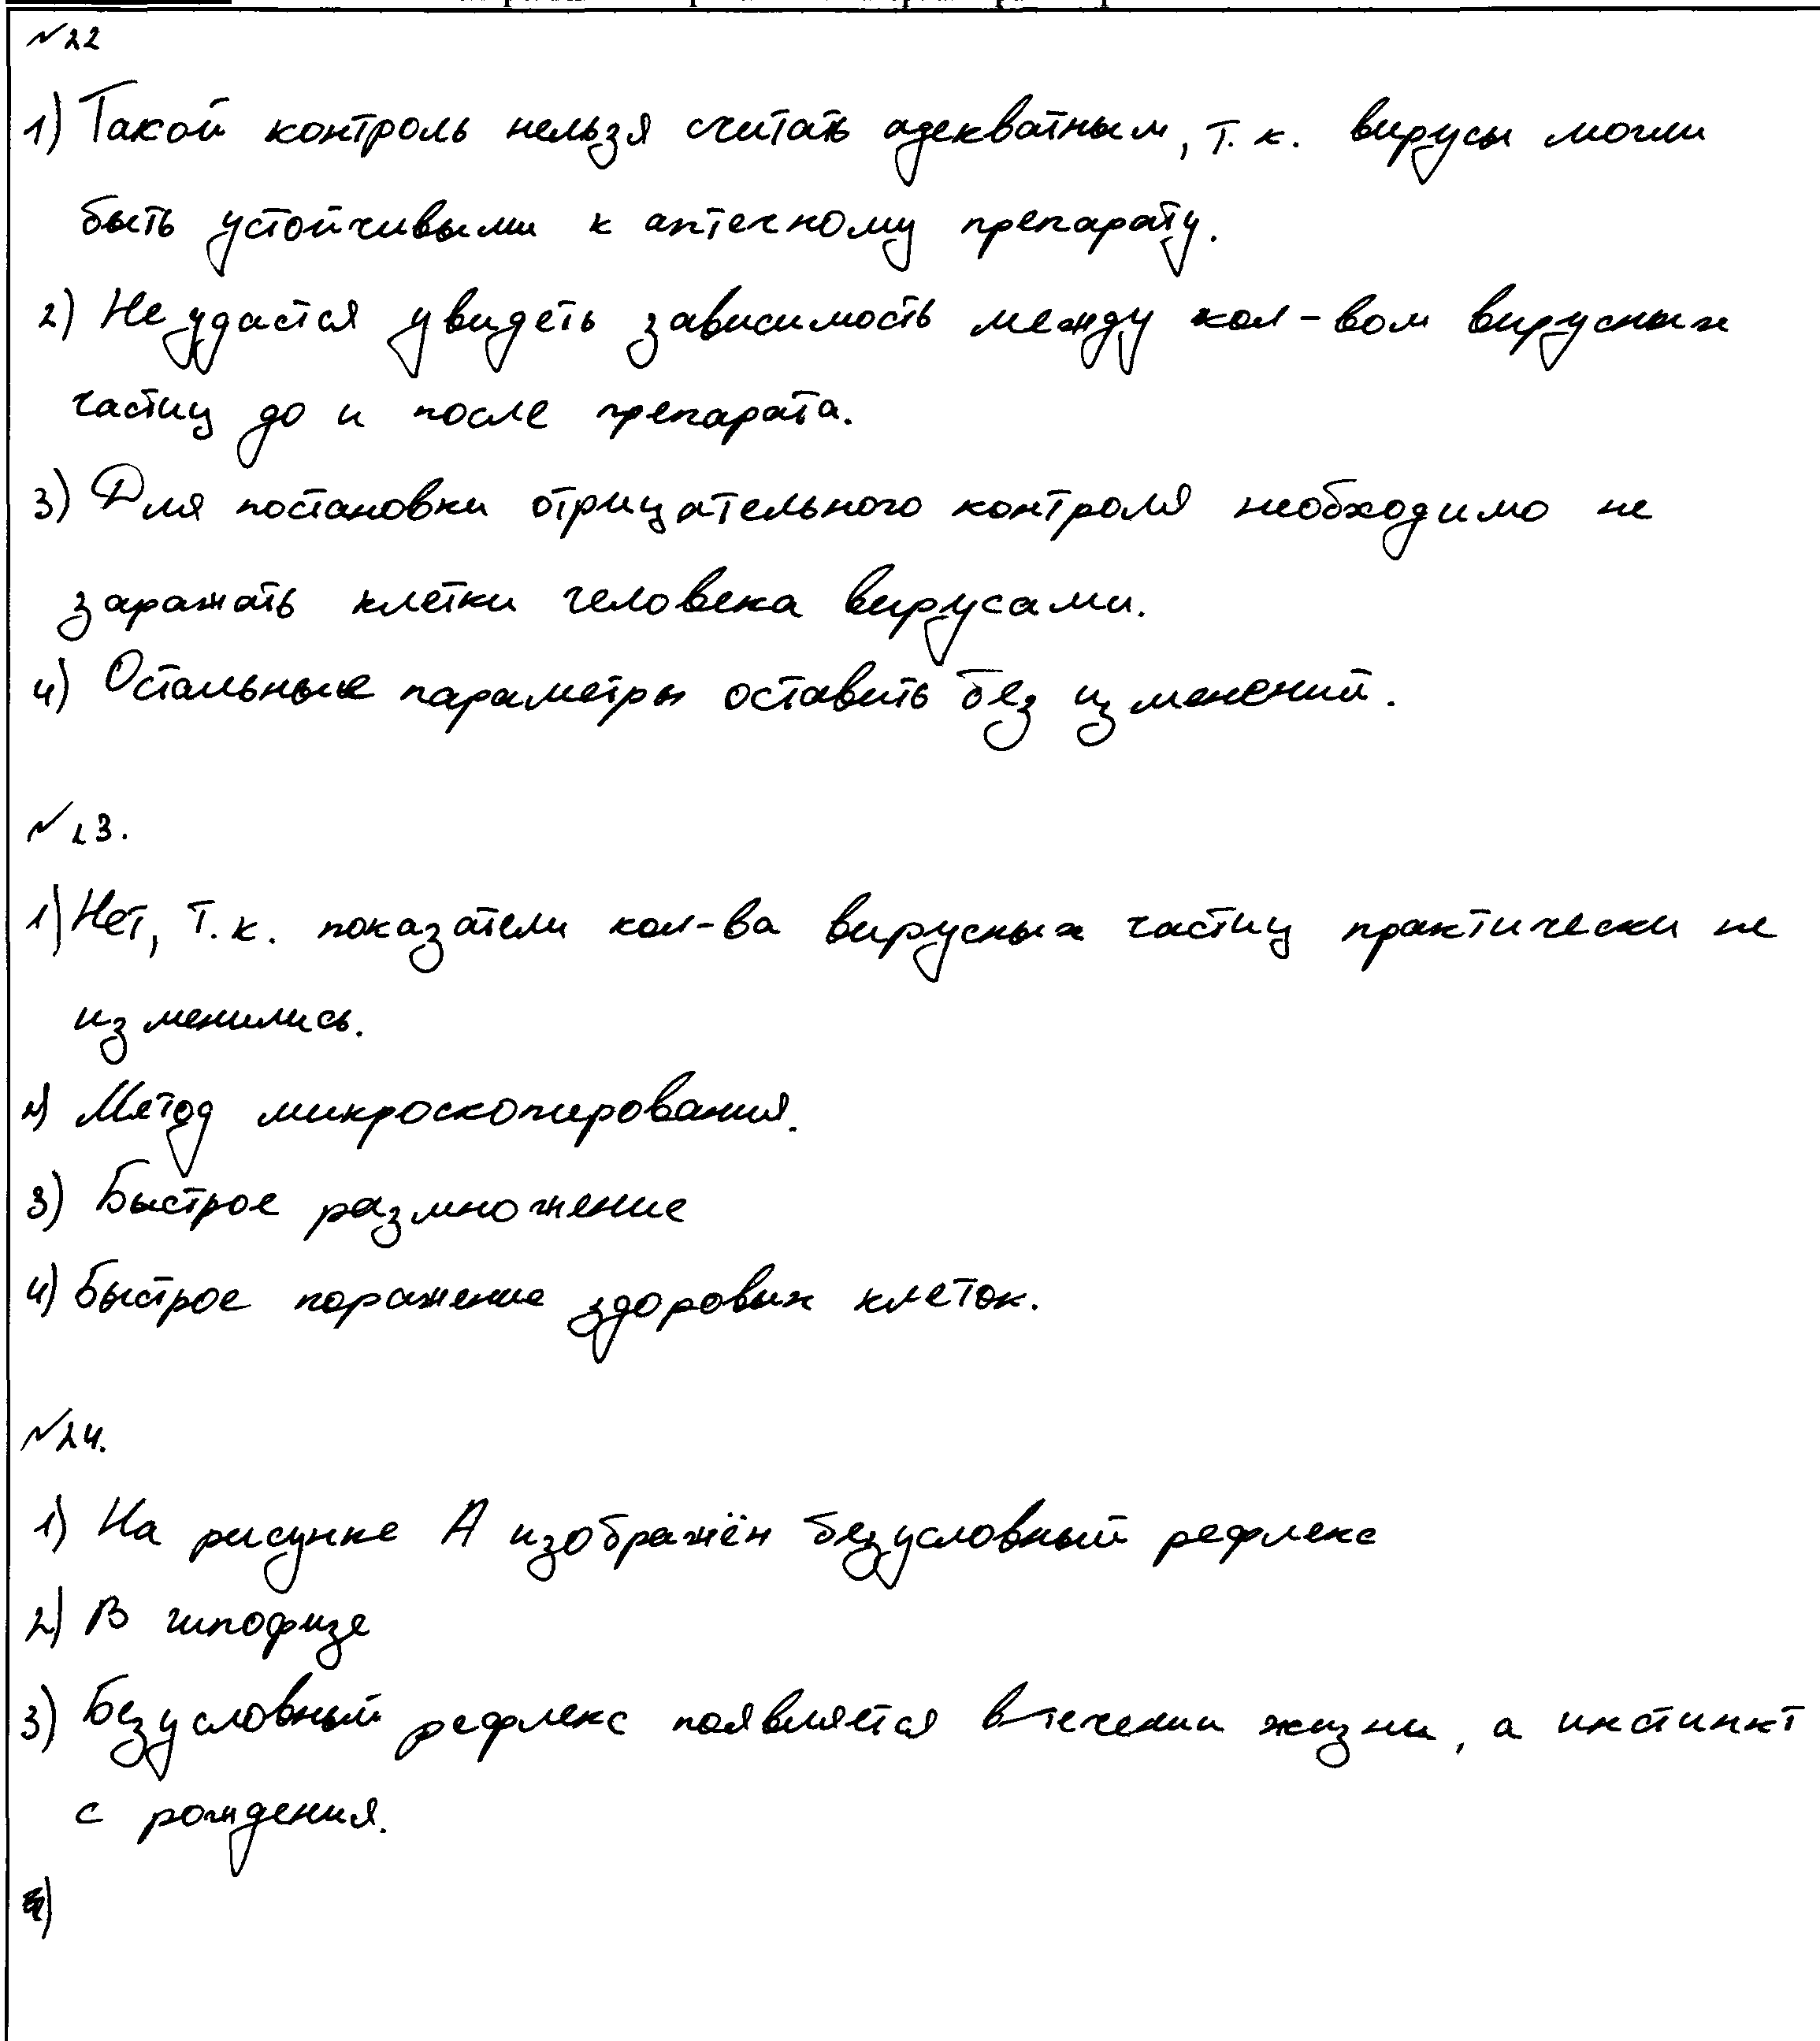 №22
1) Такой контроль нельзя считать адекватным, т. к. вирусы могли
быть устойчивыми к аптечному препарату.
2) Не удастся увидеть зависимость между кол-вом вирусных
частиц до и после препарата.
3) Для постановки отрицательного контроля необходимо не
заражать клетки человека вирусами.
4) Остальные параметры оставить без изменений.
№23.
1) Нет, т. к. показатели кол-ва вирусных частиц практически не
изменились.
2) Метод микроскопирования.
3) Быстрое размножение
4) Быстрое поражение здоровых клеток.
№24.
1) На рисунке А изображён безусловный рефлекс
2) В гипофизе
3) Безусловный рефлекс появляется в течении жизни, а инстинкт
с рождения.